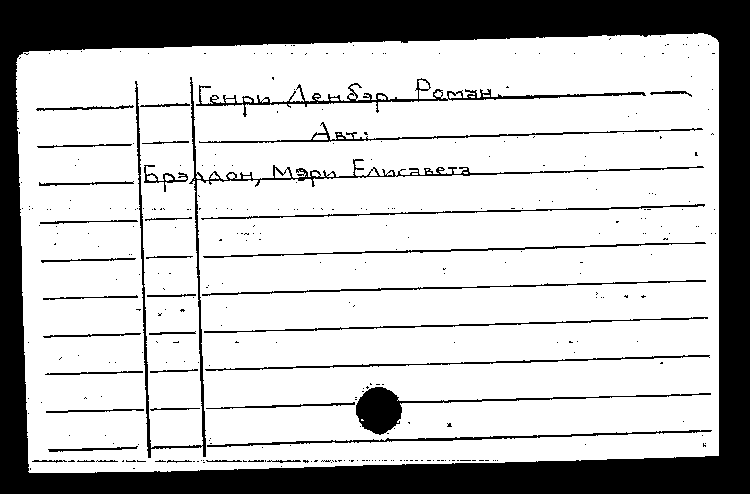 Генри Денбэр. Роман.
Авт.:
Брэддон, Мэри Елисавета